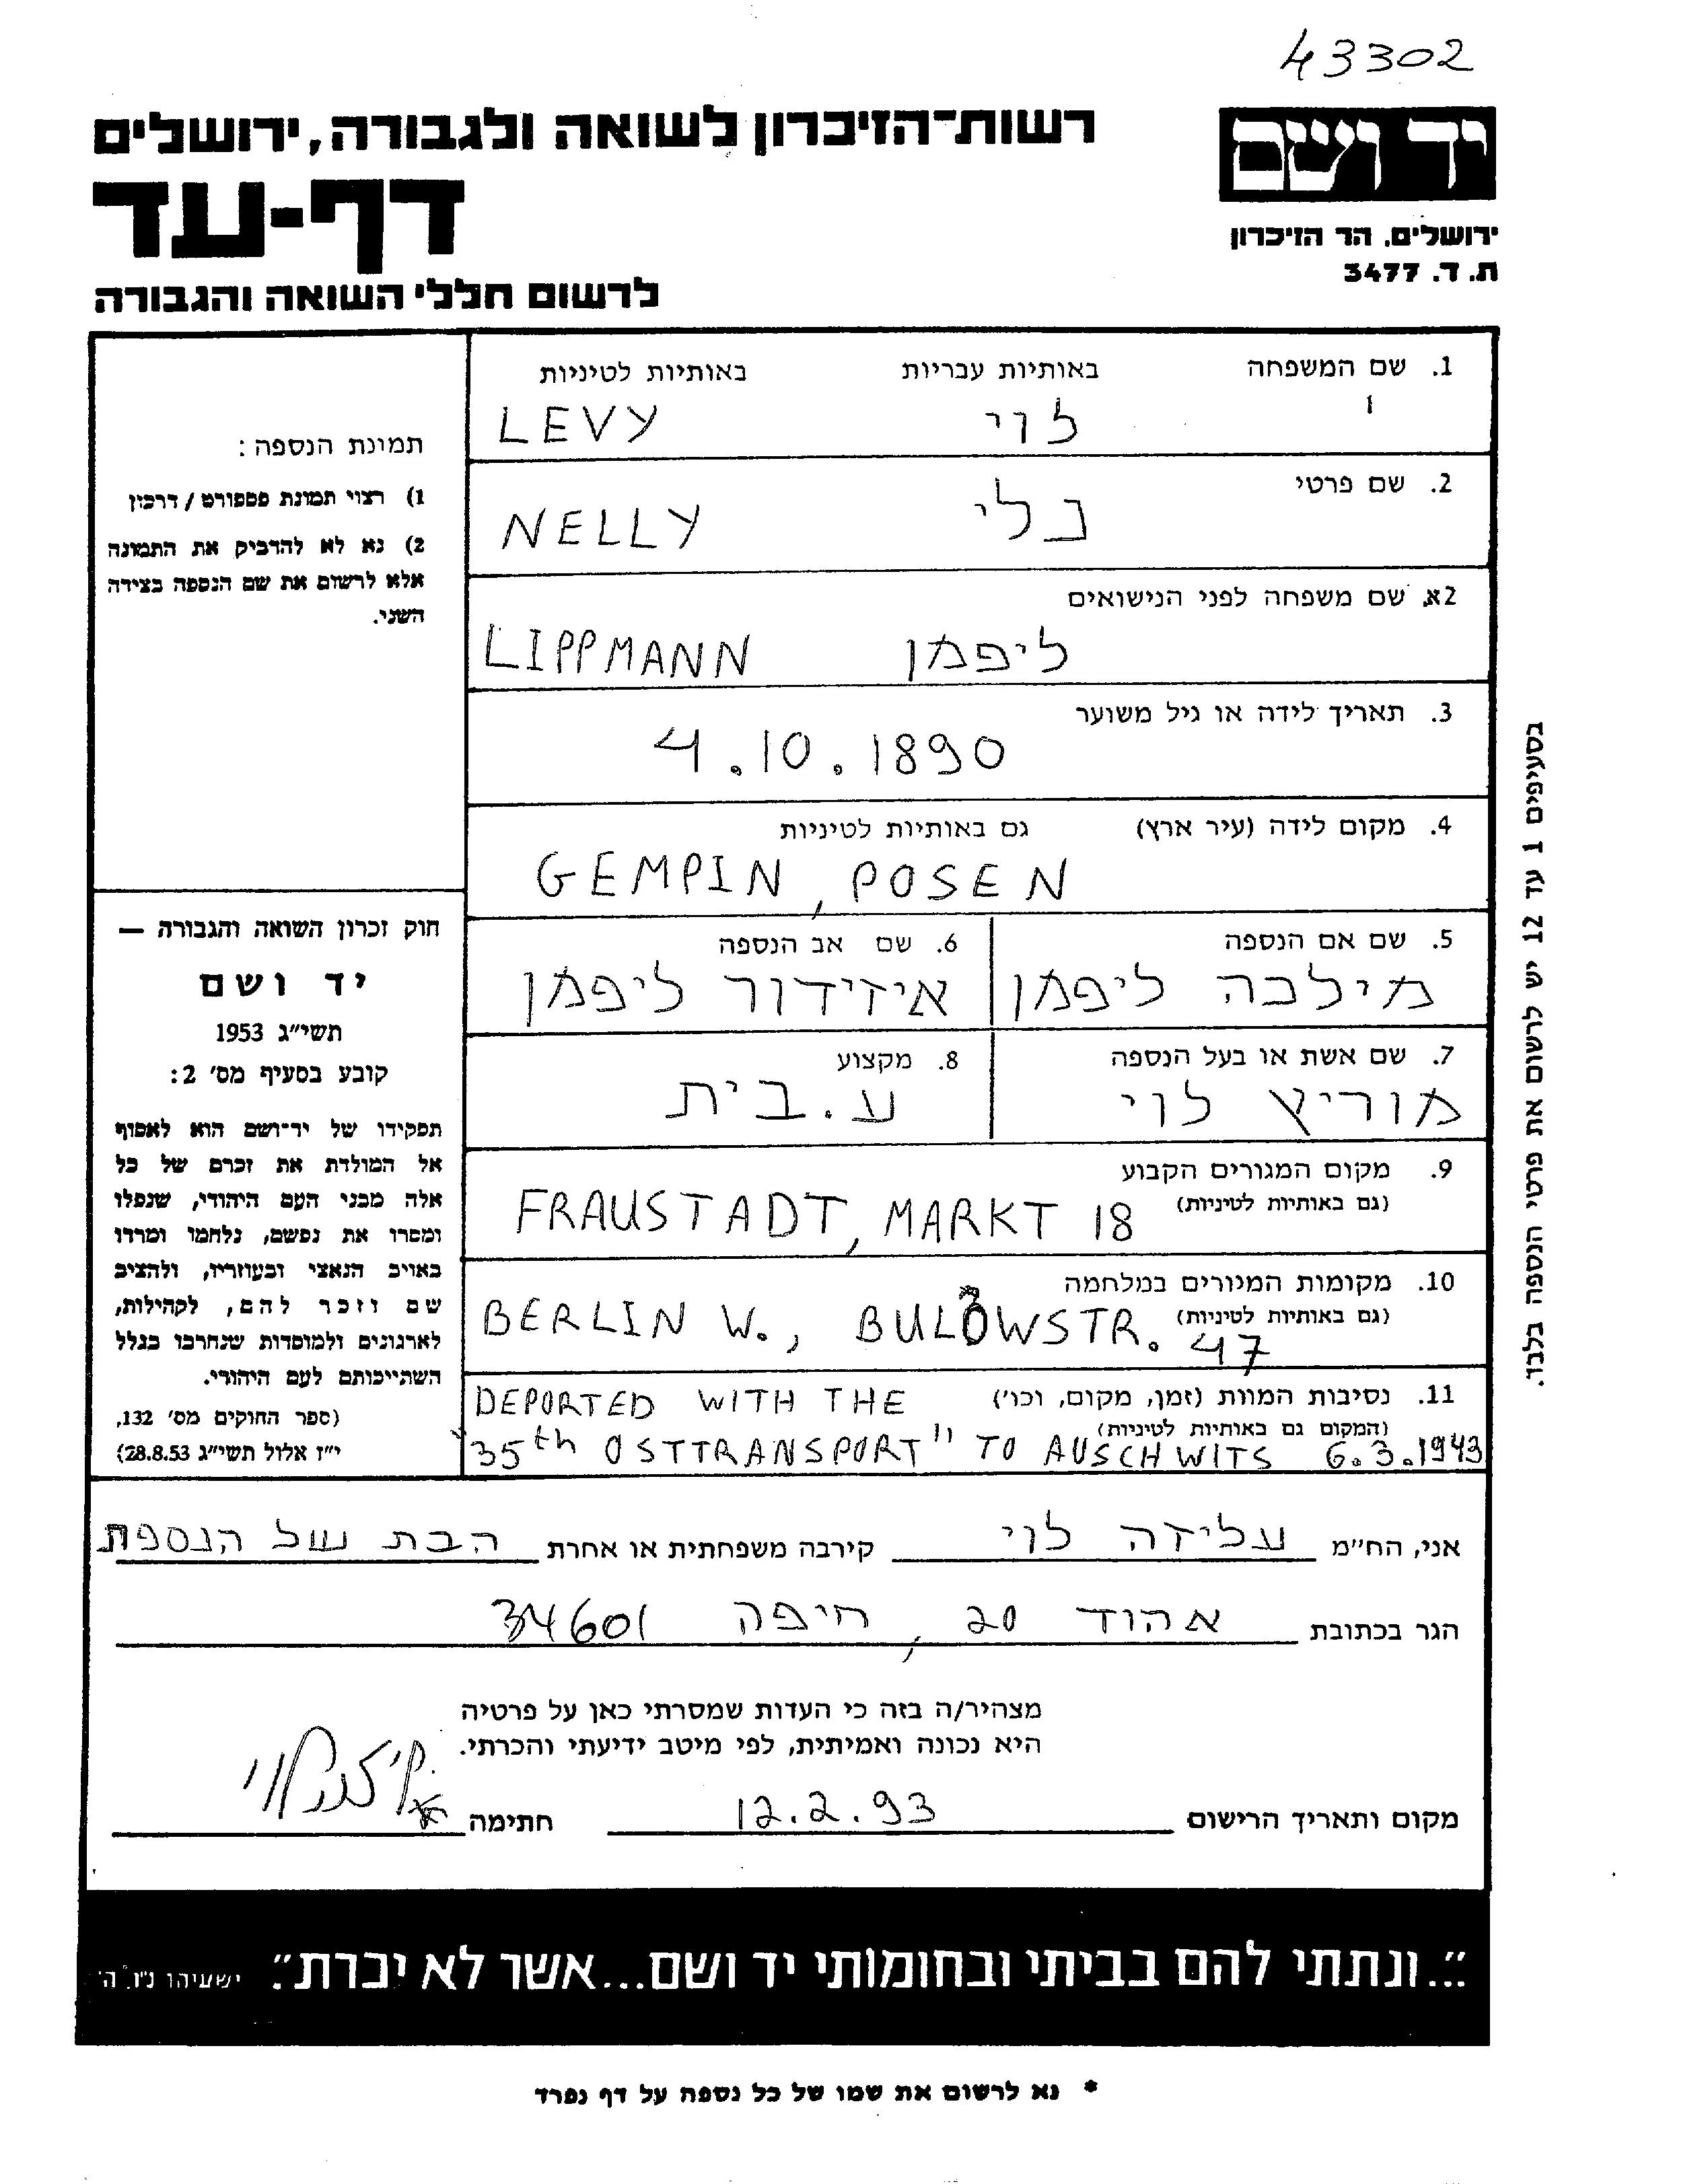 43302
רשות־הזיכרון לשואה ולגבורה, ירושלים
יד ושם
דף-עד
ירושלים, הר הזיכרון
ת. ד. 3477
לרשום חללי השואה והגבורה
1. שם המשפחה באותיות עבריות באותיות לטיניות
לוי LEVY
2. שם פרטי
נלי NELLY
2א. שם משפחה לפני הנישואים
ליפמן LIPPMANN
3. תאריך לידה או גיל משוער
4.10.1890
4. מקום לידה (עיר ארץ) גם באותיות לטיניות
GEMPIN, POSEN
5. שם אם הנספה
מילכה ליפמן
6. שם אב הנספה
איזידור ליפמן
7. שם אשת או בעל הנספה
מוריץ לוי
8. מקצוע
ע.בית
9. מקום המגורים הקבוע
(גם באותיות לטיניות)
FRAUSTADT, MARKT 18
10. מקומות המגורים במלחמה
(גם באותיות לטיניות)
BERLIN W., BULOWSTR. 47
11. נסיבות המוות (זמן, מקום, וכו')
(המקום גם באותיות לטיניות)
DEPORTED WITH THE
"35th OSTTRANSPORT" TO AUSCHWITS 6.3.1943
תמונת הנספה:
1) רצוי תמונת פספורט / דרכון
2) נא לא להדביק את התמונה
אלא לרשום את שם הנספה בצידה
השני.
חוק זכרון השואה והגבורה —
יד ושם
תשי"ג 1953
קובע בסעיף מס' 2:
תפקידו של יד־ושם הוא לאסוף
אל המולדת את זכרם של כל
אלה מבני העם היהודי, שנפלו
ומסרו את נפשם, נלחמו ומרדו
באויב הנאצי ובעוזריו, ולהציב
שם וזכר להם, לקהילות,
לארגונים ולמוסדות שנחרבו בגלל
השתייכותם לעם היהודי.
(ספר החוקים מס' 132,
י"ז אלול תשי"ג 28.8.53)
בסעיפים 1 עד 12 יש לרשום את פרטי הנספה בלבד.
אני, הח"מ עליזה לוי קירבה משפחתית או אחרת הבת של הנספת
הגר בכתובת אהוד 20, חיפה 34601
מצהיר/ה בזה כי העדות שמסרתי כאן על פרטיה
היא נכונה ואמיתית, לפי מיטב ידיעתי והכרתי.
מקום ותאריך הרישום 12.2.93 חתימה
"...ונתתי להם בביתי ובחומותי יד ושם...אשר לא יכרת". ישעיהו נ"ו, ה'
* נא לרשום את שמו של כל נספה על דף נפרד